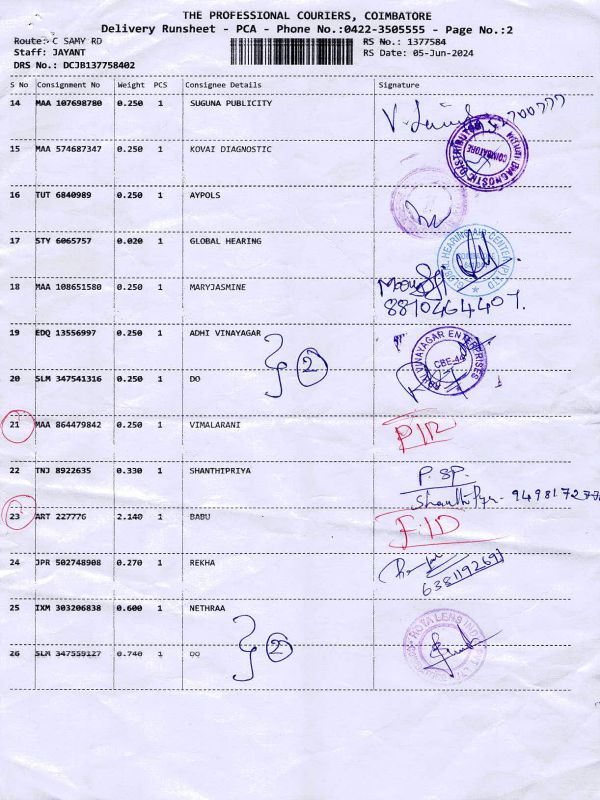 THE PROFESSIONAL COURIERS, COIMBATORE
Delivery Runsheet - PCA - Phone No.:0422-3505555 - Page No.:2
Route: C SAMY RD RS No.: 1377584
Staff: JAYANT RS Date: 05-Jun-2024
DRS No.: DCJB137758402
S No Consignment No Weight PCS Consignee Details Signature
14 MAA 107698780 0.250 1 SUGUNA PUBLICITY
15 MAA 574687347 0.250 1 KOVAI DIAGNOSTIC COIMBATORE
16 TUT 6840989 0.250 1 AYPOLS
17 STY 6065757 0.020 1 GLOBAL HEARING
18 MAA 108651580 0.250 1 MARYJASMINE
8810464407.
19 EDQ 13556997 0.250 1 ADHI VINAYAGAR VINAYAGAR ENTERPRISES CBE-44
2
20 SLM 347541316 0.250 1 DO
21 MAA 864479842 0.250 1 VIMALARANI P/R
22 TNJ 8922635 0.330 1 SHANTHIPRIYA P. SP.
23 ART 227776 2.140 1 BABU F.I.D
24 JPR 502748908 0.270 1 REKHA
25 IXM 303206838 0.600 1 NETHRAA
2
26 SLM 347559127 0.740 1 DO